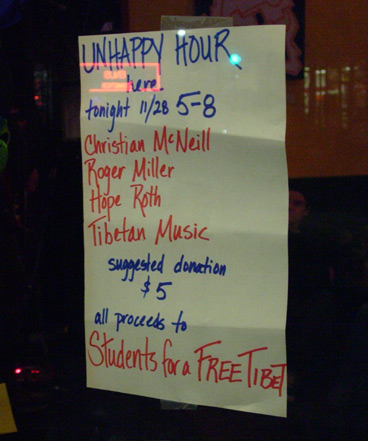 UNHAPPY HOUR
here
tonight 11/28 5-8
Christian McNeill
Roger Miller
Hope Roth
Tibetan Music
suggested donation
$5
all proceeds to
Students for a FREE TIBET